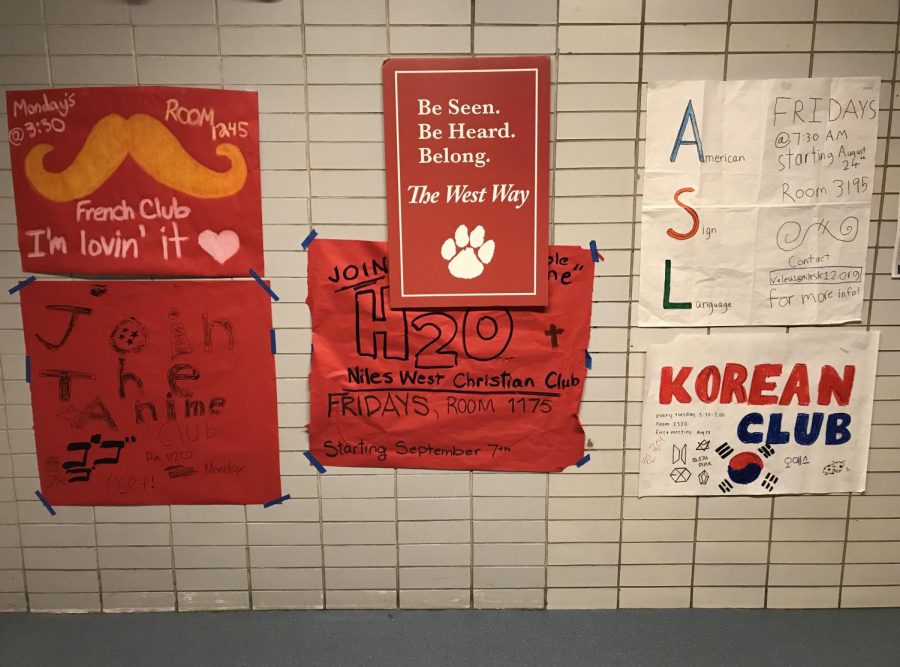 Monday's
@ 3:30
ROOM
1245
French Club
I'm lovin' it
Join
The
Anime
CLUB
ゴゴ
Monday
Be Seen.
Be Heard.
Belong.
The West Way
JOIN
H2O
Niles West Christian Club
FRIDAYS, ROOM 1175
Starting September 7th
American
Sign
Language
FRIDAYS
@ 7:30 AM
starting August
24th
Room 3195
Contact
For more info!
KOREAN
CLUB
every tuesday 3:30-5:00
room 2320
first meeting
BLACK
PINK